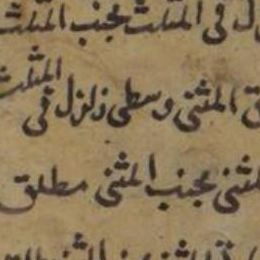 ل فى المثلث مجنب المثلث
ق المثنى وسطى زلزل فى المثلث
لمثنى مجنب المثنى مطلق